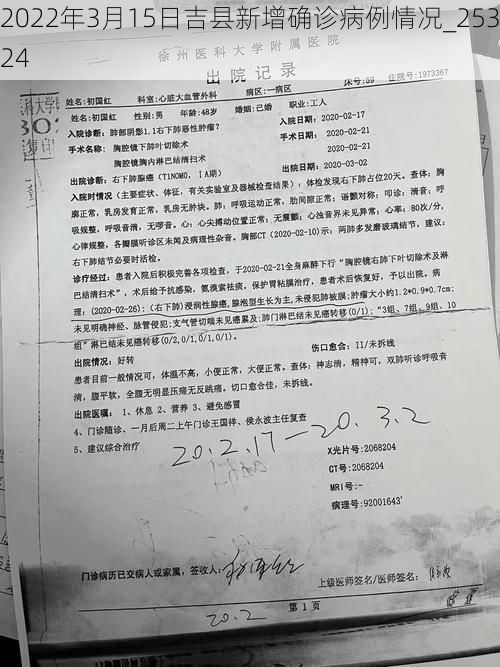 2022年3月15日吉县新增确诊病例情况_253
24
徐州医科大学附属医院
出院记录
床号:59 住院号:1973367
姓名:初国红 科室:心脏大血管外科 病区:一病区
姓名:初国红 性别:男 年龄:48岁 婚姻:已婚 职业:工人
入院诊断:肺部阴影1.1右下肺恶性肿瘤? 入院日期:2020-02-17
手术名称: 胸腔镜下肺叶切除术 手术日期:2020-02-21
胸腔镜胸内淋巴结清扫术 2020-02-21
出院诊断:右下肺腺癌(T1N0M0,ⅠA期) 出院日期:2020-03-02
入院时情况(主要症状、体征,有关实验室及器械检查结果):体检发现右下肺占位20天。查体:胸
廓正常,乳房发育正常,乳房无肿块。肺:呼吸运动正常,肋间隙正常;语颤对称;叩诊:清音;呼
吸规整,呼吸音清,无啰音。心:心尖搏动位置正常;无震颤;心浊音界未见异常;心率:80次/分,
心律规整,各瓣膜听诊区未闻及病理性杂音。胸部CT(2020-02-10)示:两肺多发磨玻璃结节,建议:
右下肺结节必要时活检。
诊疗经过:患者入院后积极完善各项检查,于2020-02-21全身麻醉下行“胸腔镜右肺下叶切除术及淋
巴结清扫术”,术后给予抗感染,氨溴索祛痰,保护胃粘膜治疗,患者术后恢复好,予以出院。病
理:(2020-02-26):(右下肺)浸润性腺癌,腺泡型生长为主,未侵犯肺被膜;肿瘤大小约1.2*0.9*0.7cm;
未见明确神经、脉管侵犯;支气管切端未见癌累及;肺门淋巴结未见癌转移(0/1);“3组、7组、9组、10
组”淋巴结未见癌转移(0/2,0/1,0/1,0/1)。
出院情况:好转 伤口愈合:II/未拆线
患者目前一般情况可,体温不高,小便正常,大便正常。查体:神志清,精神可,双肺听诊呼吸音
清,腹平软,全腹无明显压痛无反跳痛。切口愈合佳,未拆线。
出院医嘱: 1、休息 2、营养 3、避免感冒
4、门诊随诊、一月后周二上午门诊王国祥、侯永波主任复查
5、建议综合治疗
20.2.17—20.3.2
X光片号:2068204
CT号:2068204
MRI号:-
病理号:92001643
门诊病历已交病人或家属,签收人:
上级医师签名/医师签名:
第 1 页
20.2